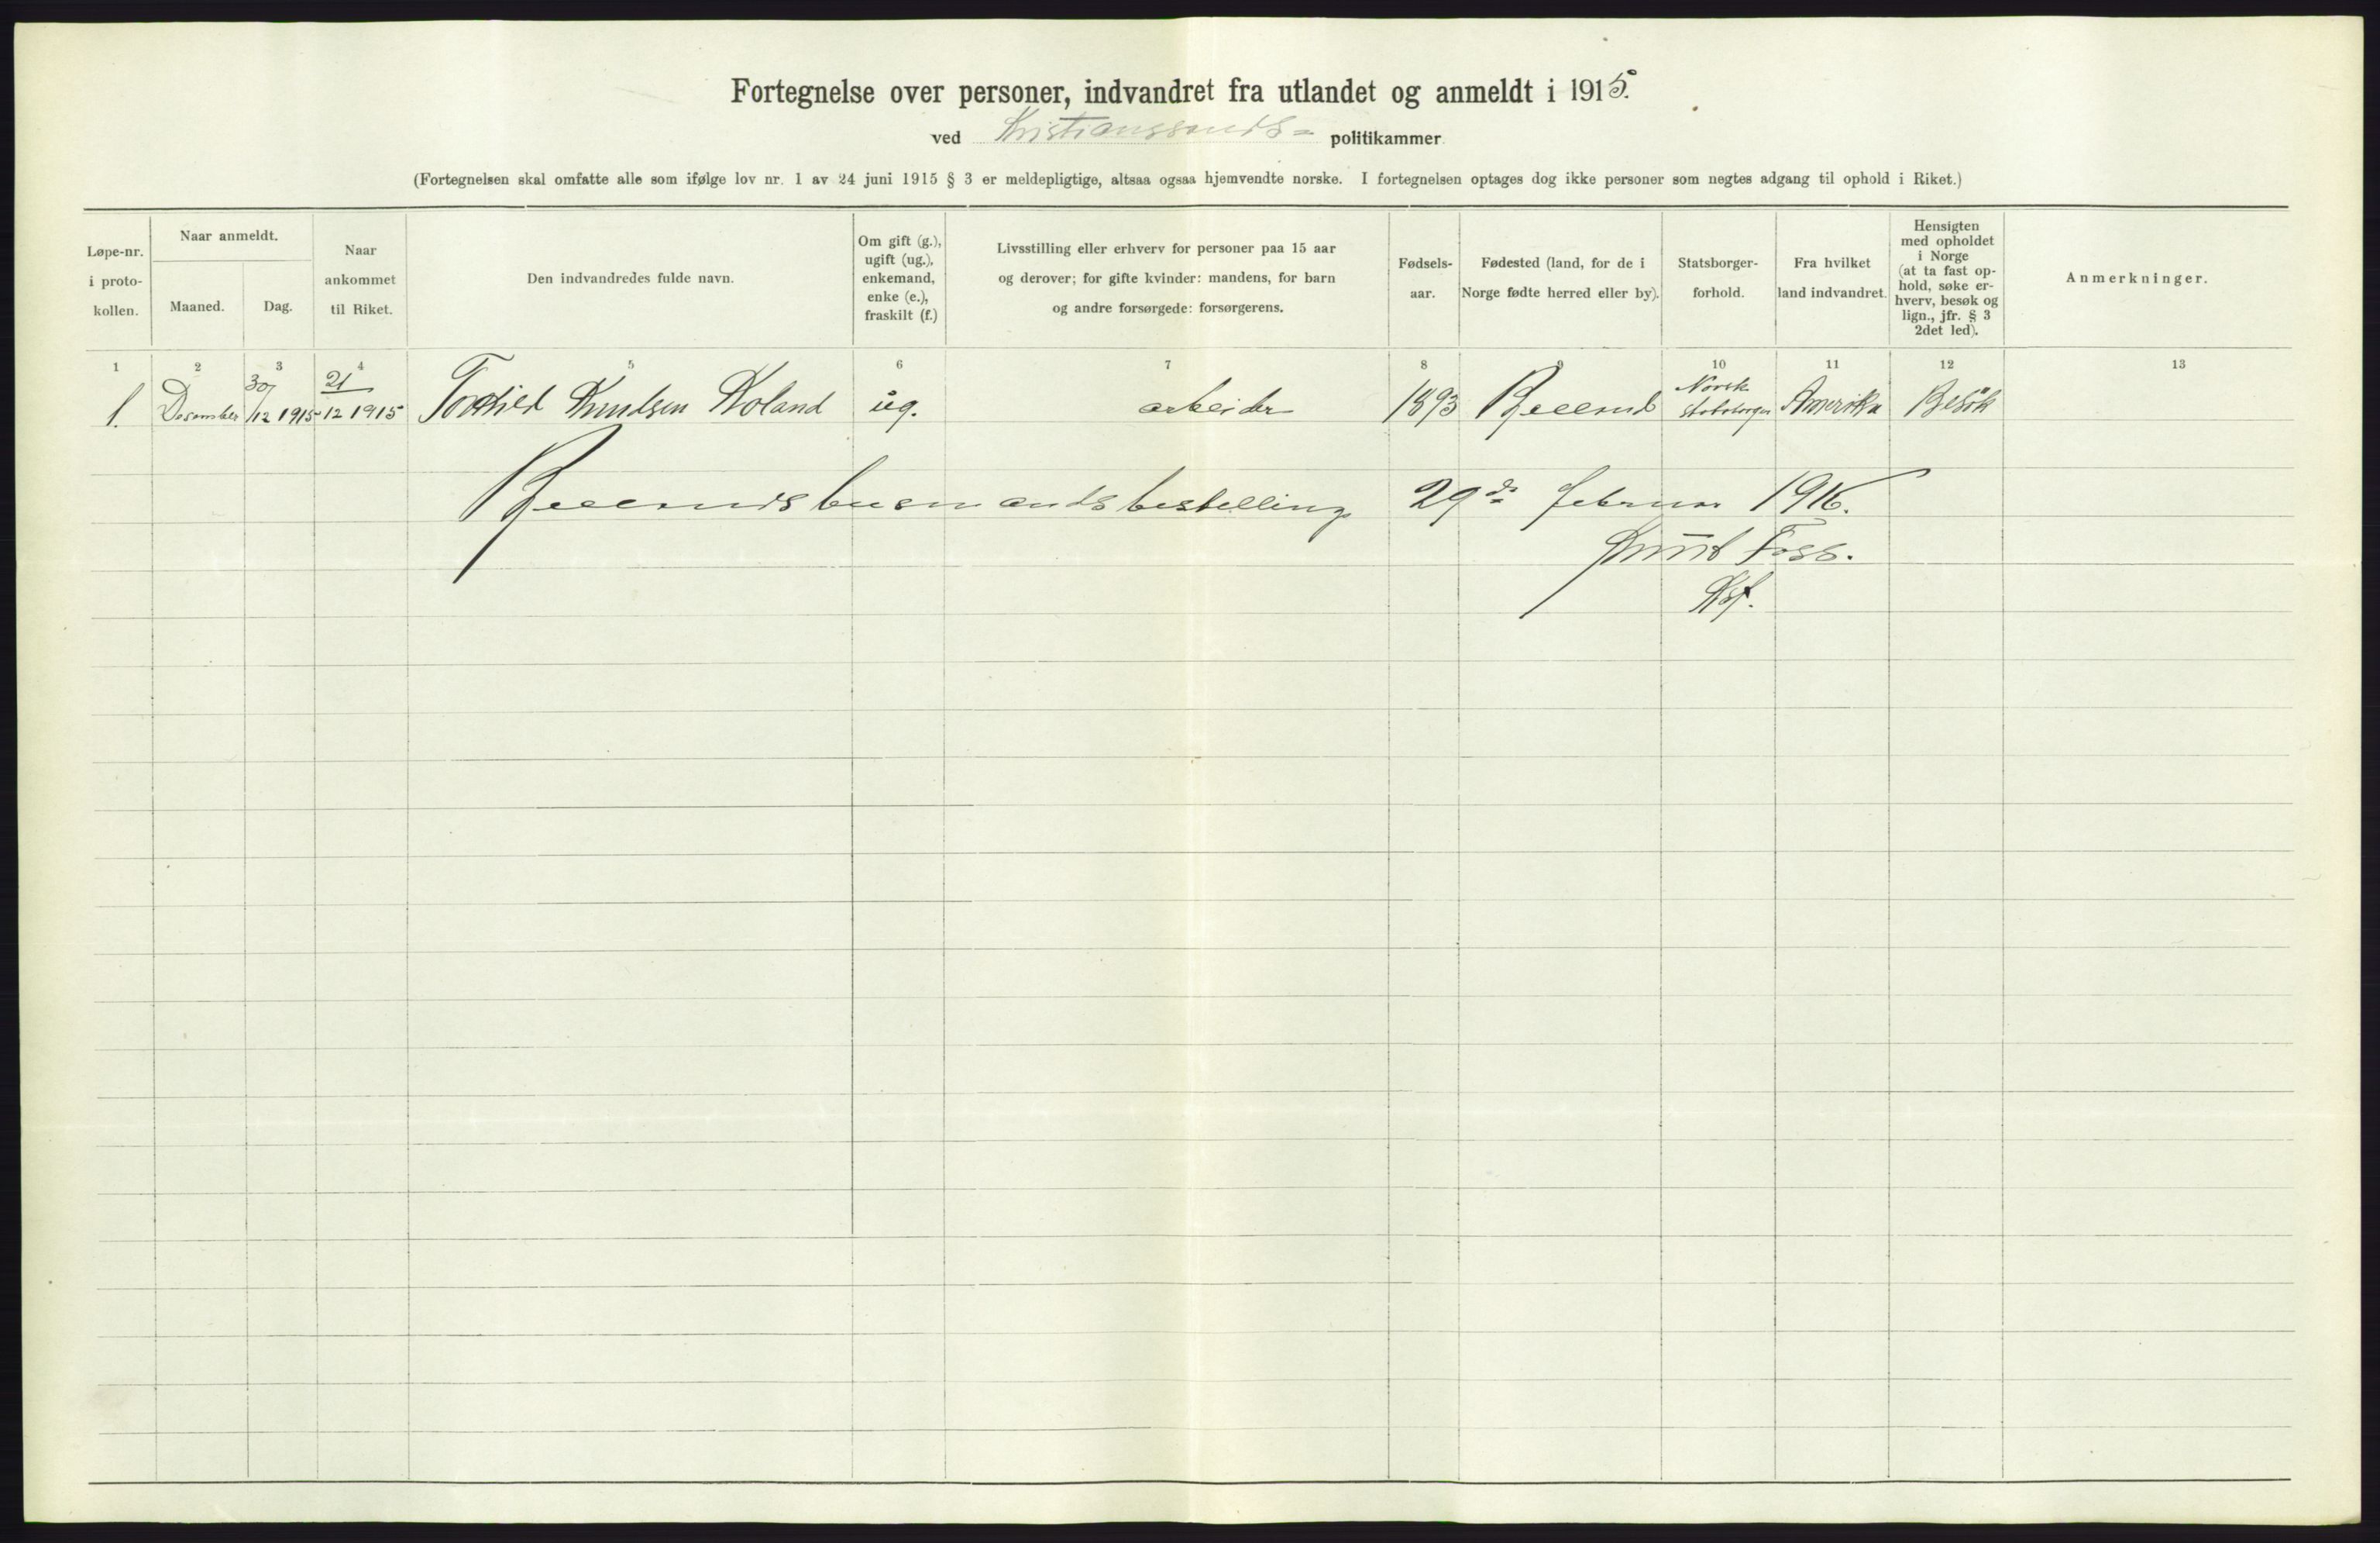 Fortegnelse over personer, indvandret fra utlandet og anmeldt i 1915.
ved Kristianssands politikammer
(Fortegnelsen skal omfatte alle som ifølge lov nr. 1 av 24 juni 1915 § 3 er meldepligtige, altsaa ogsaa hjemvendte norske. I fortegnelsen optages dog ikke personer som negtes adgang til ophold i Riket.)
Løpe-nr.
i proto-
kollen.
Naar anmeldt.
Maaned.
Dag.
Naar
ankommet
til Riket.
Den indvandredes fulde navn.
Om gift (g.),
ugift (ug.),
enkemand,
enke (e.),
fraskilt (f.)
Livsstilling eller erhverv for personer paa 15 aar
og derover; for gifte kvinder: mandens, for barn
og andre forsørgede: forsørgerens.
Fødsels-
aar.
Fødested (land, for de i
Norge fødte herred eller by).
Statsborger-
forhold.
Fra hvilket
land indvandret.
Hensigten
med opholdet
i Norge
(at ta fast op-
hold, søke er-
hverv, besøk og
lign., jfr. § 3
2det led).
Anmerkninger.
1 2 3 4 5 6 7 8 9 10 11 12 13
1. Desember 30/12 1915 21/12 1915 Knudsen Roland ug. arbeider 1893 Norsk statsborger Amerika Besøk
29de februar 1916.
Knut Foss.